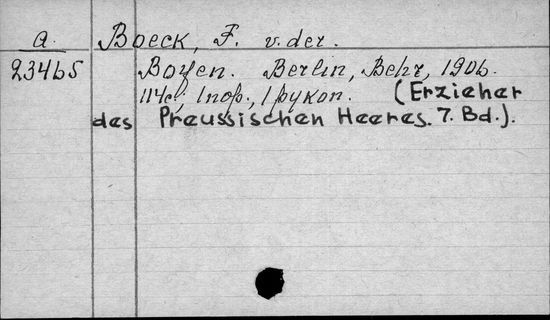 a. Boeck, F. v. der.
23465 Boyen. Berlin, Behr, 1906.
114c., 1 порт., 1 рукоп. (Erzieher
des Preussischen Heeres. 7. Bd.).